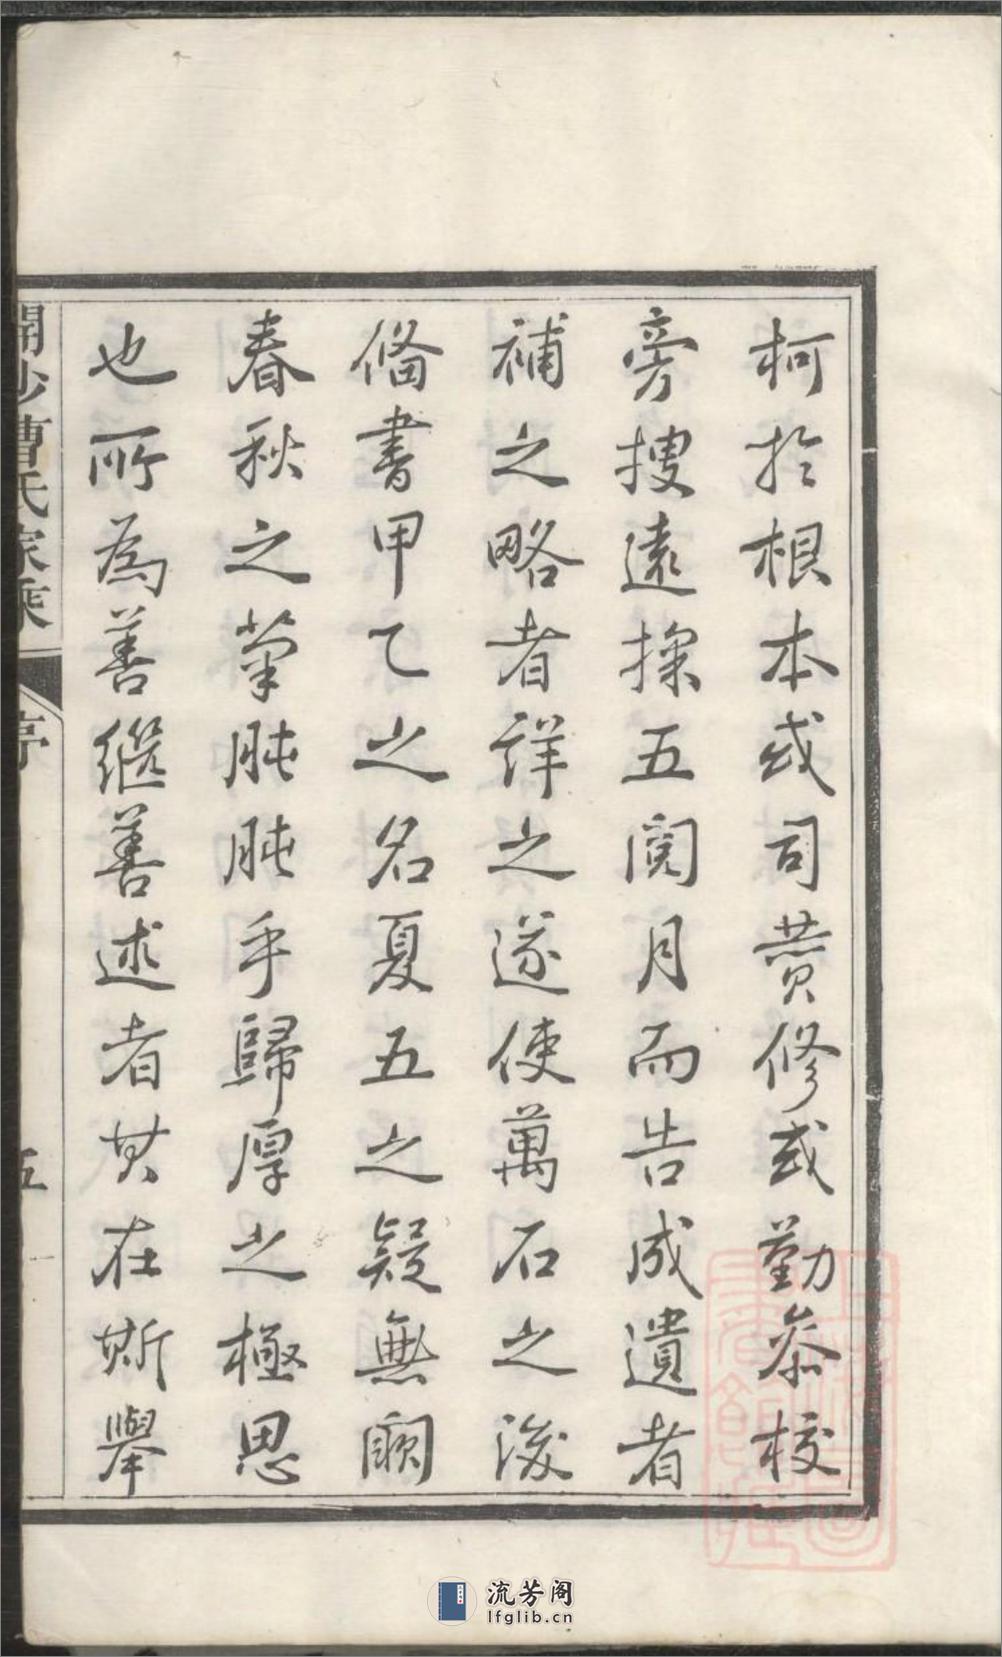 柯於根本或司黄修或勤叅校
旁搜遠探五閱月而告成遺者
補之略者詳之遂使萬石之後
俻書甲乙之名夏五之疑無闕
春秋之筆肫肫乎歸厚之極思
也所為善繼善述者其在斯舉
開沙曹氏家乘
序
五
流芳阁
lfglib.cn